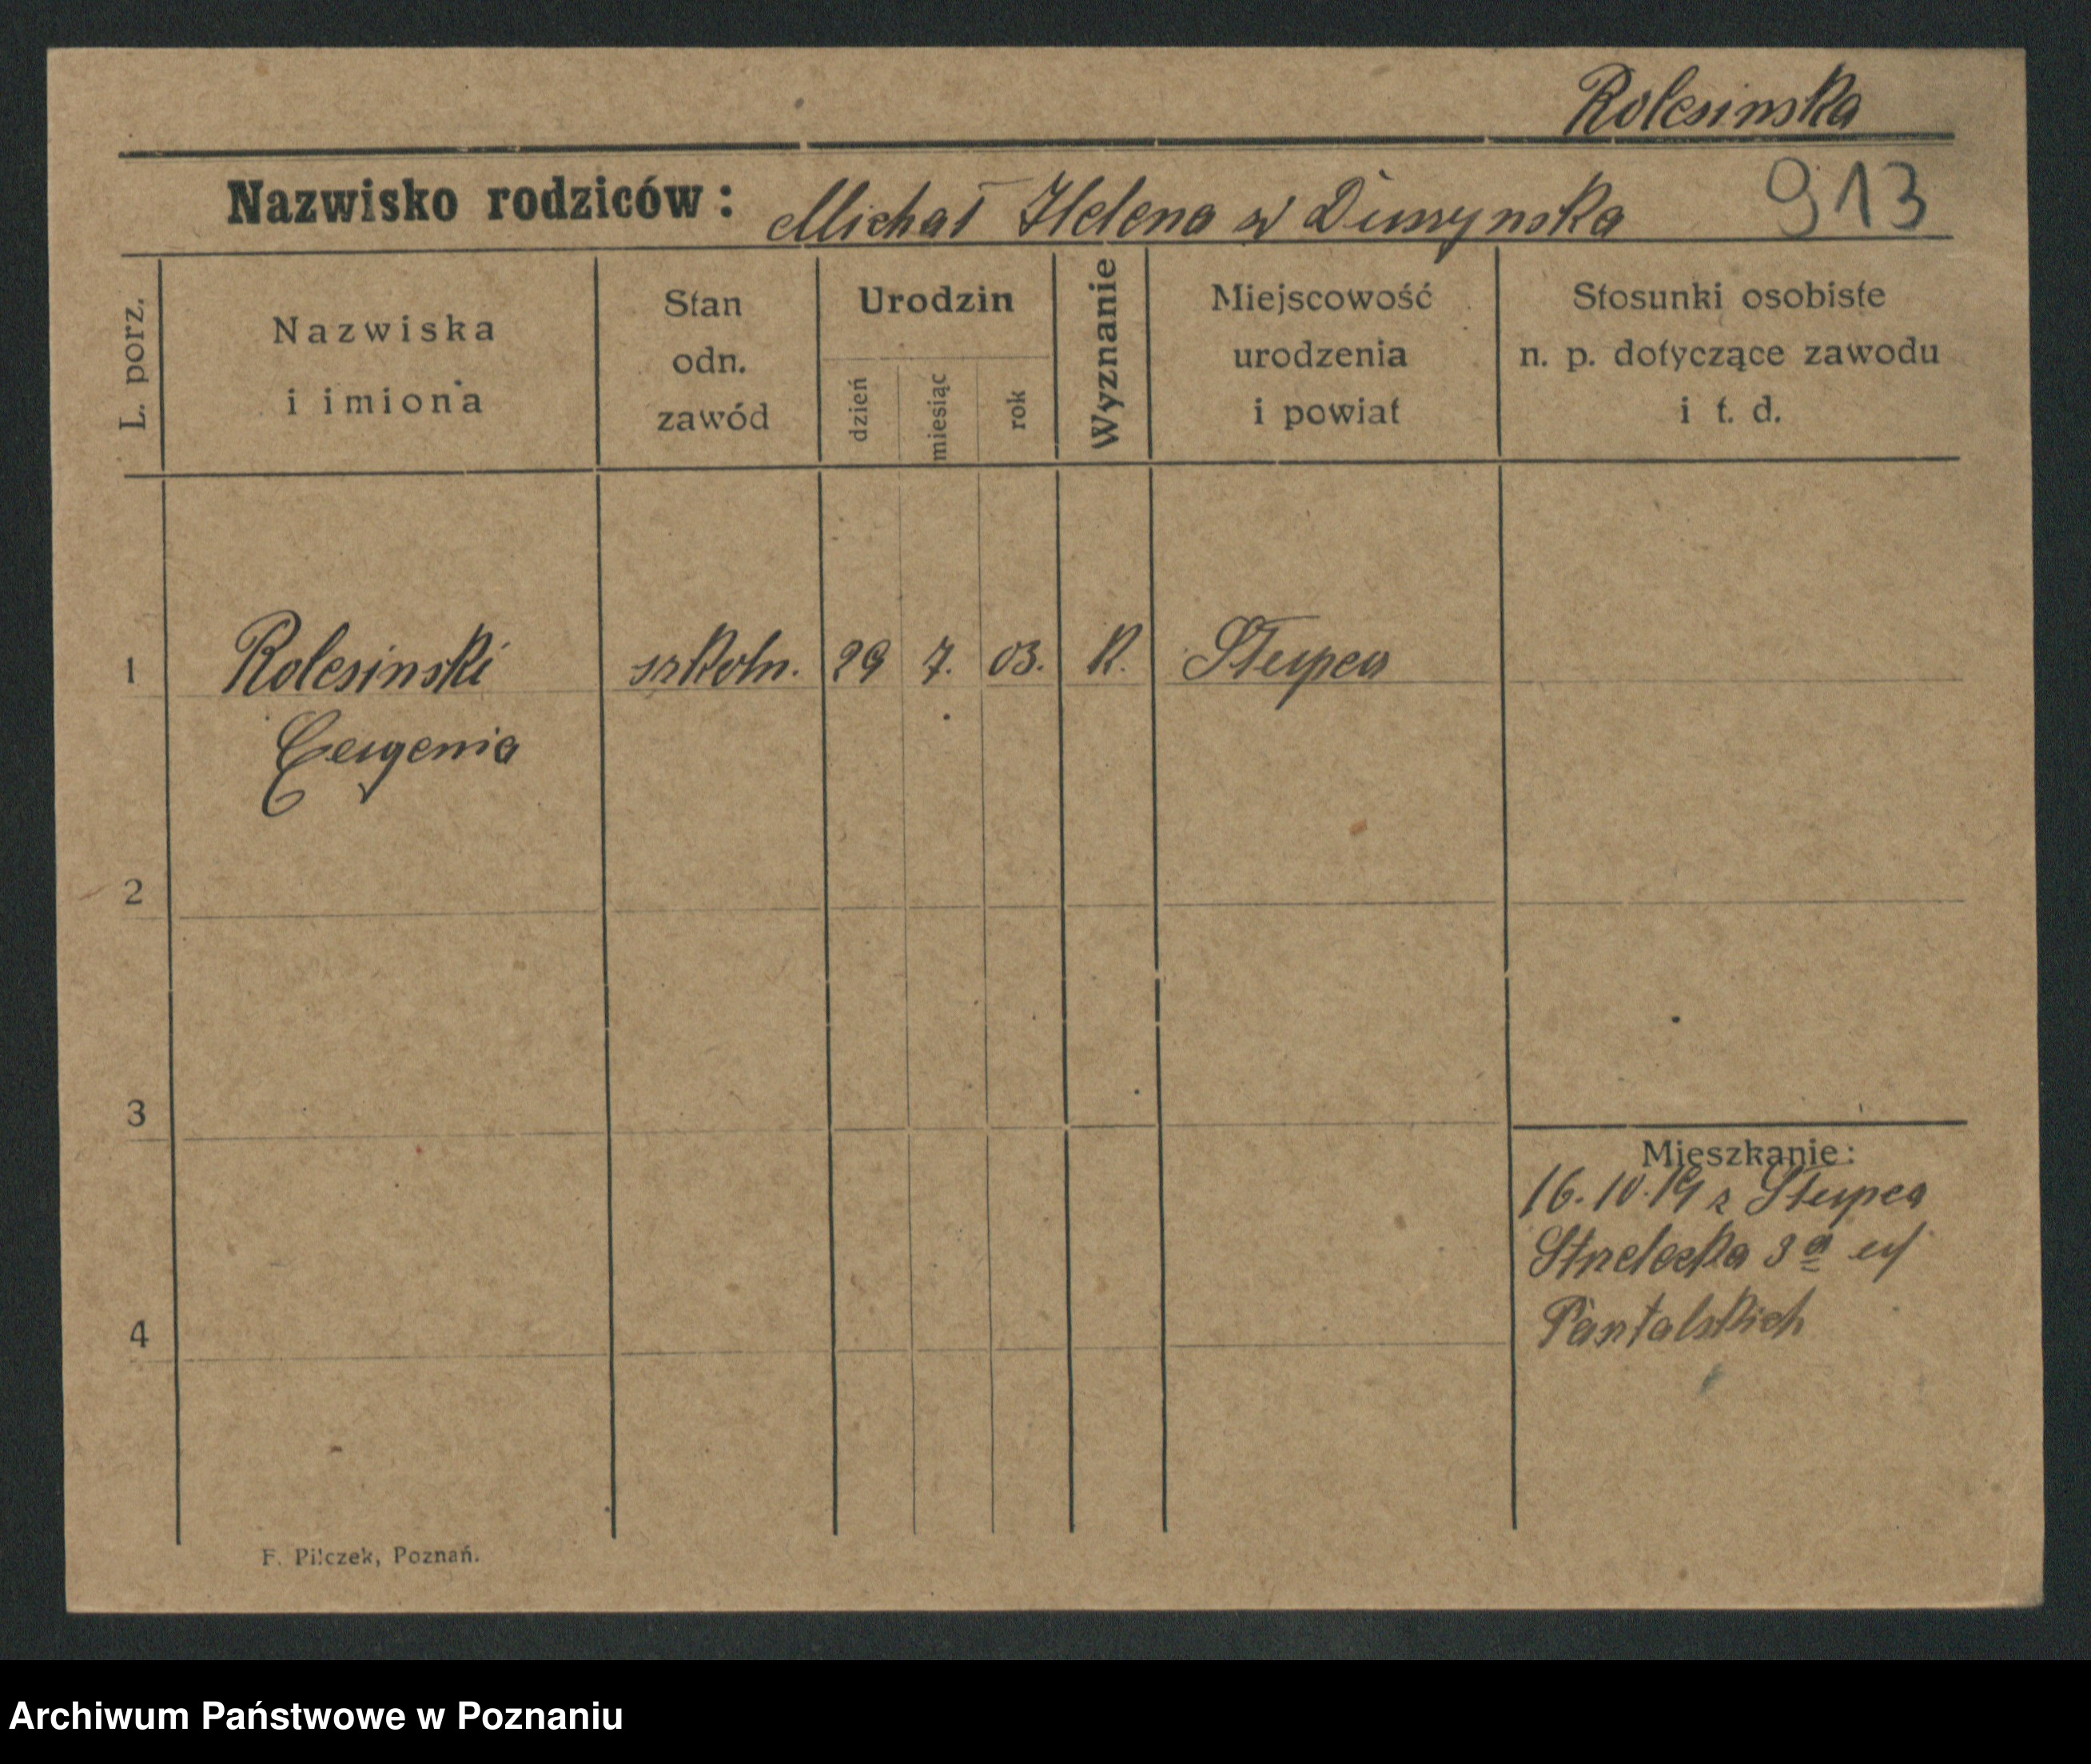 Rolesinska
Nazwisko rodziców: Michał Helena w Duszynska 913
L. porz.
Nazwiska
i imiona
Stan
odn.
zawód
Urodzin
dzień
miesiąc
rok
Wyznanie
Miejscowość
urodzenia
i powiat
Stosunki osobiste
n. p. dotyczące zawodu
i t. d.
1 Rolesinski szkoln. 29 7. 03. K. Słupca
Eugenia
2
3
Mieszkanie:
16.10.19 z Słupca
Strzelecka 3a u
4
F. Pilczek, Poznań.
Archiwum Państwowe w Poznaniu